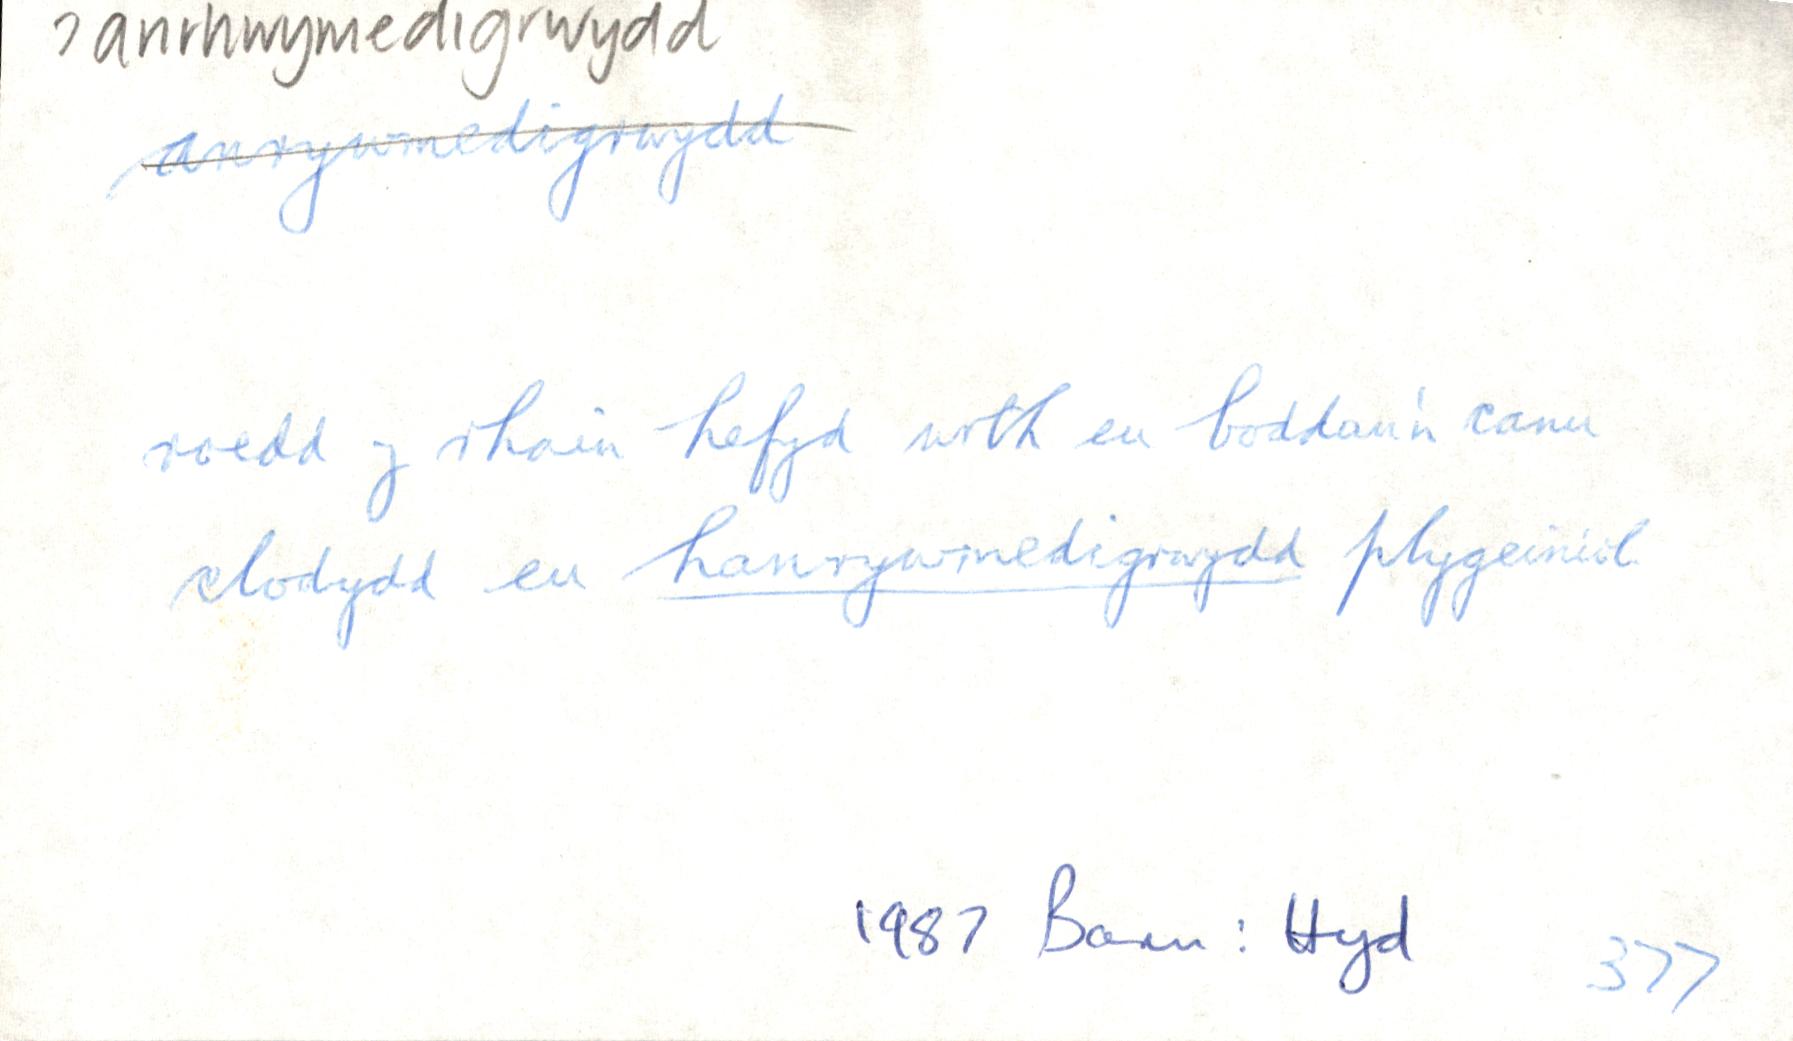 ?anrhwymedigrwydd
anrywmedigrwydd
roedd y rhain hefyd wrth eu boddau'n canu
clodydd eu hanrywmedigrwydd plygeiniol
1987 Barn: Hyd 377